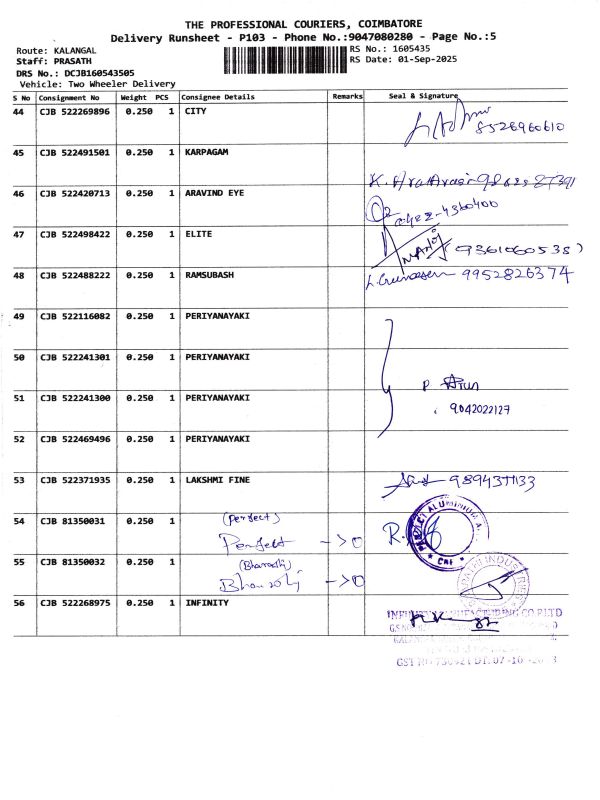 THE PROFESSIONAL COURIERS, COIMBATORE
Delivery Runsheet - P103 - Phone No.:9047080280 - Page No.:5
Route: KALANGAL
RS No.: 1605435
Staff: PRASATH
RS Date: 01-Sep-2025
DRS No.: DCJB160543505
Vehicle: Two Wheeler Delivery
S No Consignment No Weight PCS Consignee Details Remarks Seal & Signature
44 CJB 522269896 0.250 1 CITY
8526960610
45 CJB 522491501 0.250 1 KARPAGAM
46 CJB 522420713 0.250 1 ARAVIND EYE
47 CJB 522498422 0.250 1 ELITE
MANOJ (9361060538)
48 CJB 522488222 0.250 1 RAMSUBASH
9952826374
49 CJB 522116082 0.250 1 PERIYANAYAKI
50 CJB 522241301 0.250 1 PERIYANAYAKI
P Arun
51 CJB 522241300 0.250 1 PERIYANAYAKI
9042022127
52 CJB 522469496 0.250 1 PERIYANAYAKI
53 CJB 522371935 0.250 1 LAKSHMI FINE
54 CJB 81350031 0.250 1 (Perfect)
Perfect -> 0
PERFECT ALUMINIUM
CBE
55 CJB 81350032 0.250 1 (Bharathi)
Bharathi -> 0
INDUSTRIES
56 CJB 522268975 0.250 1 INFINITY
CO.P.LTD